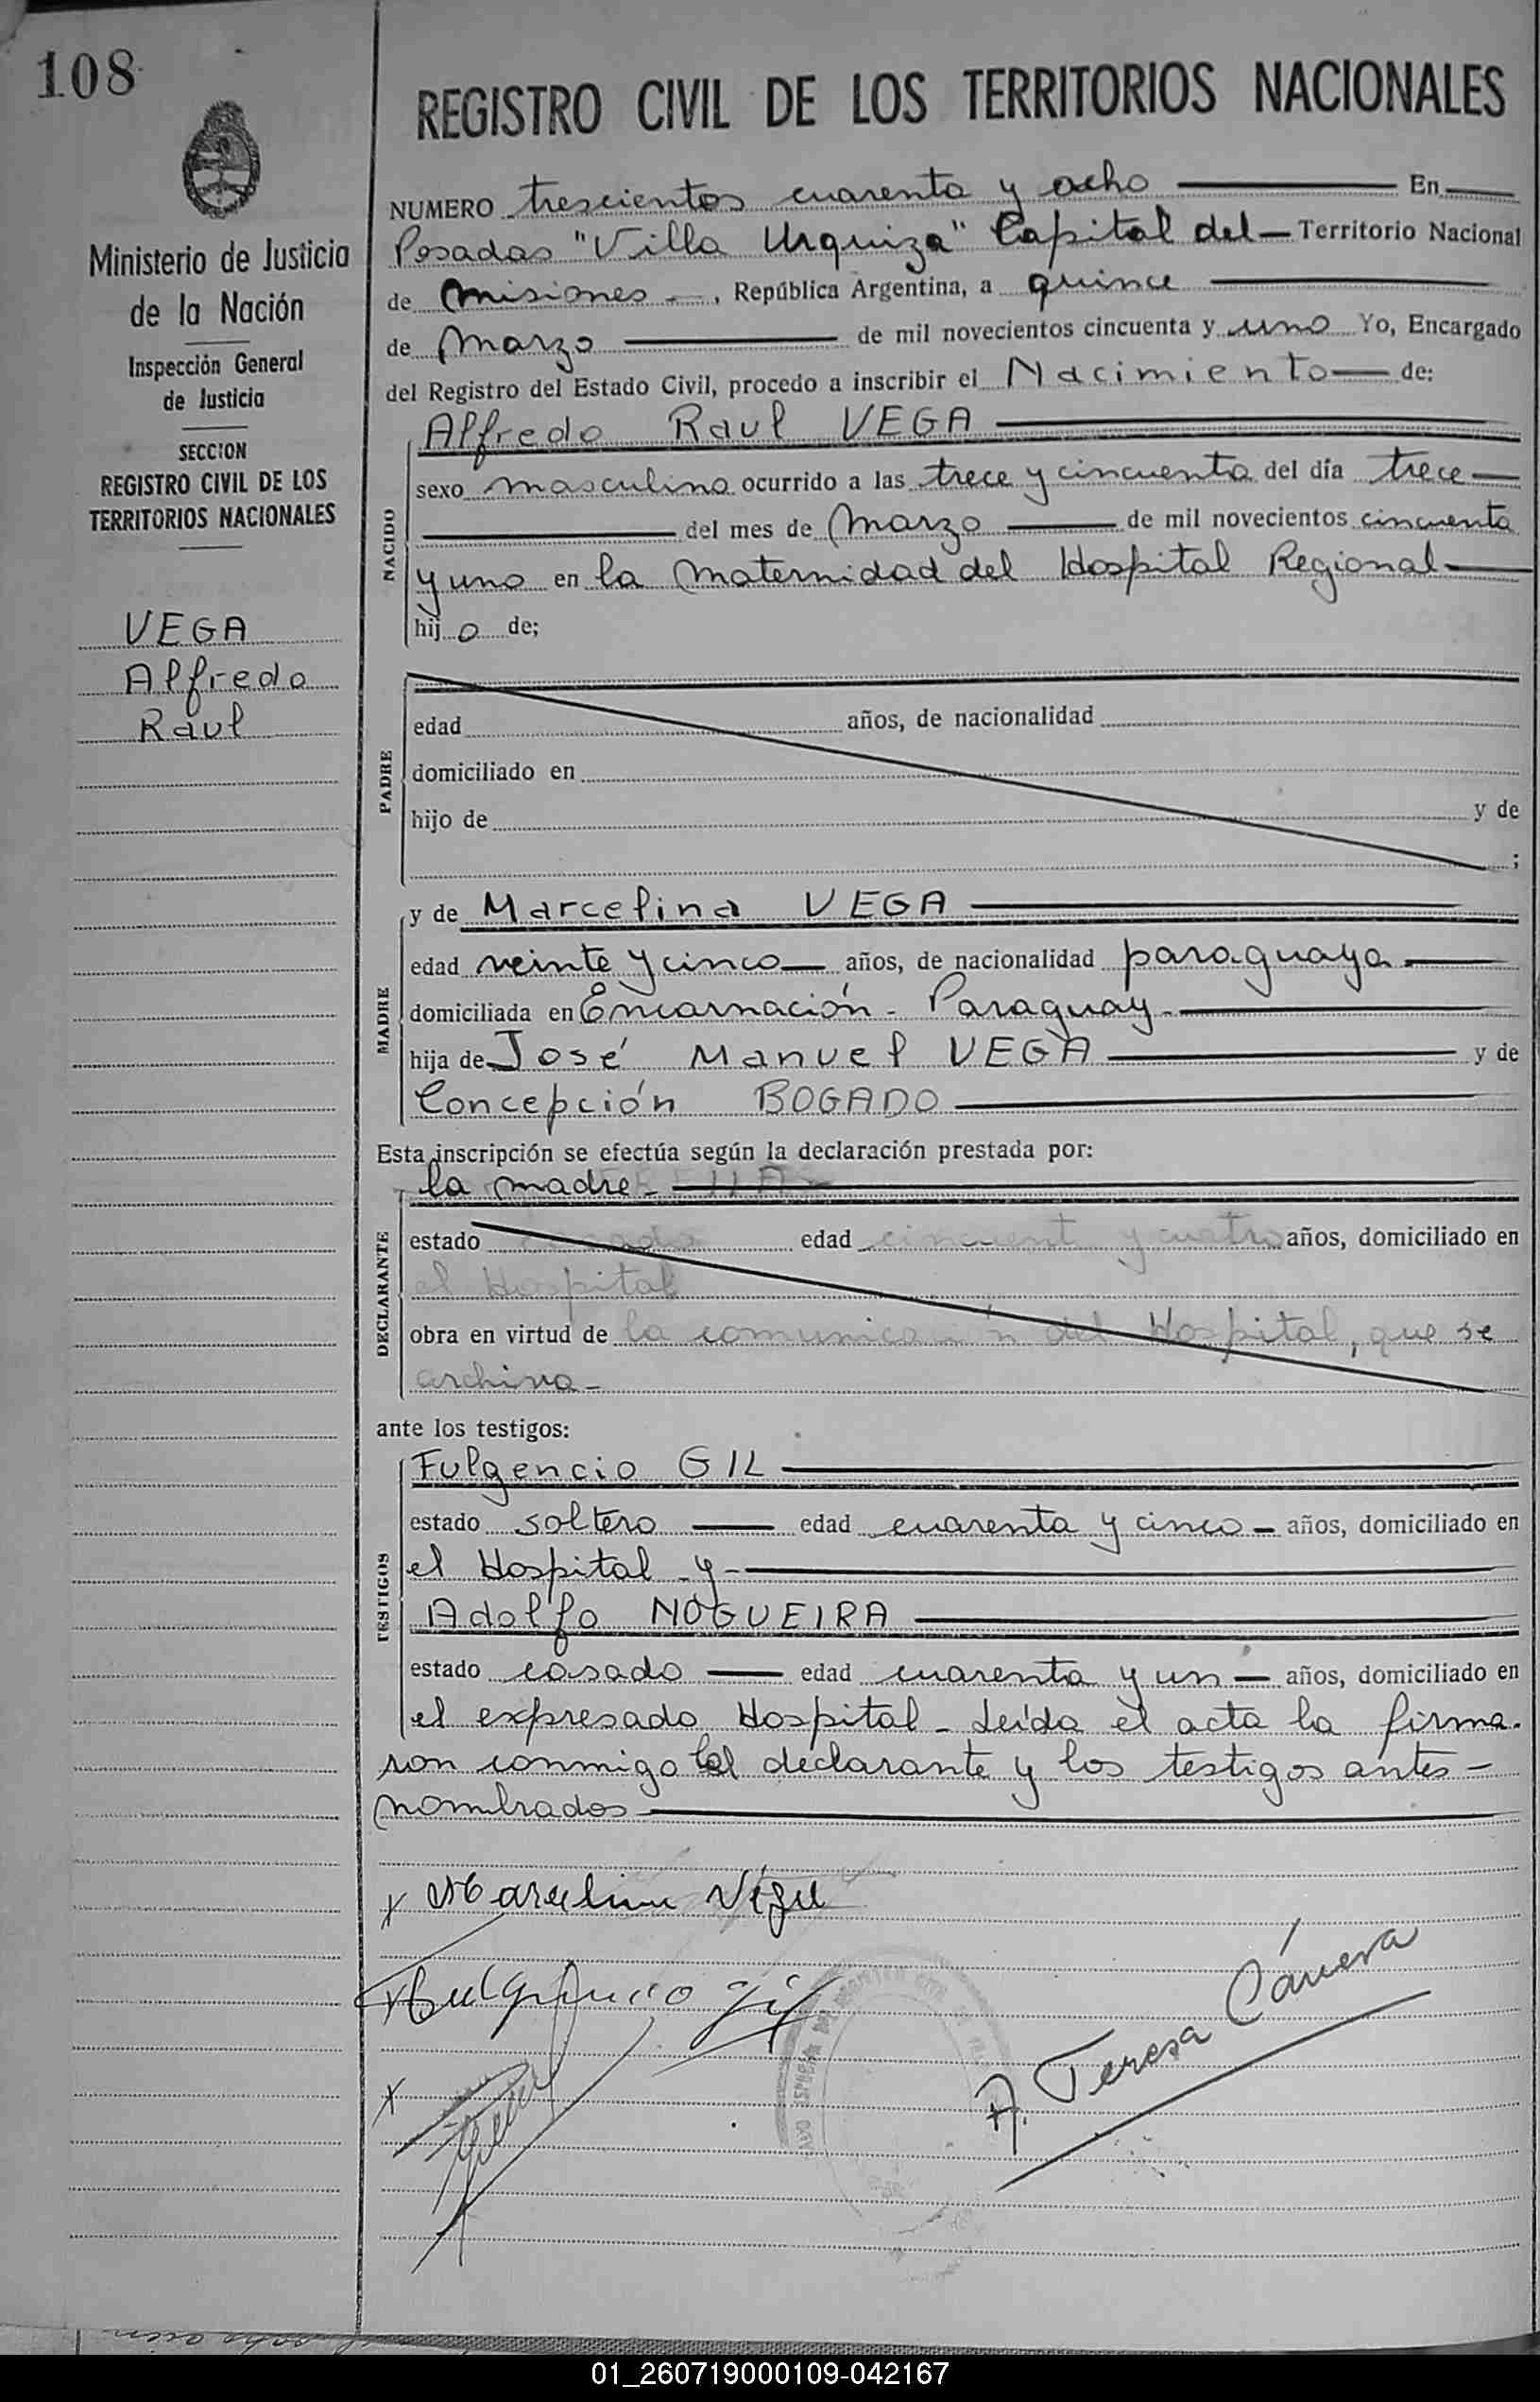 108
REGISTRO CIVIL DE LOS TERRITORIOS NACIONALES
Ministerio de Justicia
de la Nación
Inspección General
de Justicia
SECCION
REGISTRO CIVIL DE LOS
TERRITORIOS NACIONALES
VEGA
Alfredo
Raul
NUMERO trescientos cuarenta y ocho En
Posadas "Villa Urquiza" Capital del Territorio Nacional
de Misiones , República Argentina, a quince
de Marzo de mil novecientos cincuenta y uno Yo, Encargado
del Registro del Estado Civil, procedo a inscribir el Nacimiento de:
NACIDO
Alfredo Raul VEGA
sexo masculino ocurrido a las trece y cincuenta del día trece
del mes de Marzo de mil novecientos cincuenta
y uno en la Maternidad del Hospital Regional
hijo de;
PADRE
edad años, de nacionalidad
domiciliado en
hijo de y de
;
MADRE
y de Marcelina VEGA
edad veinte y cinco años, de nacionalidad paraguaya.
domiciliada en Encarnación - Paraguay.
hija de José Manuel VEGA y de
Concepción BOGADO
Esta inscripción se efectúa según la declaración prestada por:
la madre
DECLARANTE
estado casado edad cincuent y cuatro años, domiciliado en
el Hospital
obra en virtud de la comunicación del Hospital, que se
archiva
ante los testigos:
TESTIGOS
Fulgencio GIL
estado soltero edad cuarenta y cinco años, domiciliado en
el Hospital y
Adolfo NOGUEIRA
estado casado edad cuarenta y un años, domiciliado en
el expresado Hospital - Leída el acta la firma-
ron conmigo el declarante y los testigos antes
nombrados
x Marcelina Vega
x Fulgencio Gil
x
A. Teresa Cánera
01_260719000109-042167